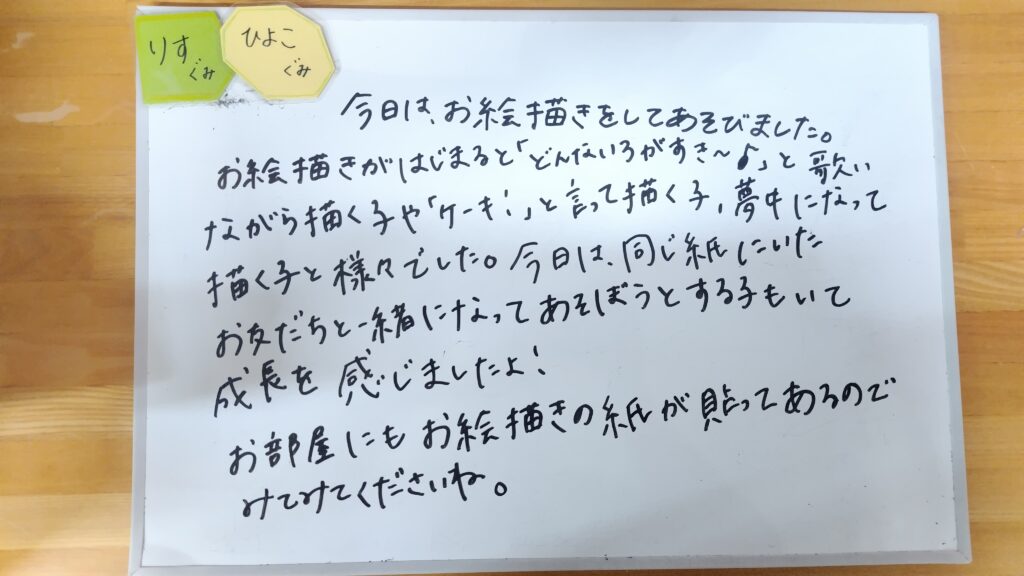 りす
ぐみ
ひよこ
ぐみ
今日は、お絵描きをしてあそびました。
お絵描きがはじまると「どんないろがすき〜♪」と歌い
ながら描く子や「ケーキ!」と言って描く子、夢中になって
描く子と様々でした。今日は、同じ紙にいた
お友だちと一緒になってあそぼうとする子もいて
成長を感じましたよ!
お部屋にもお絵描きの紙が貼ってあるので
みてみてくださいね。